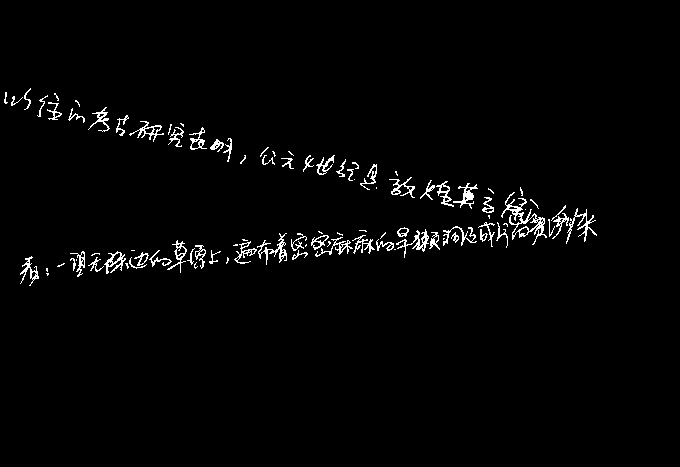 以往的考古研究表明，公元4世纪是敦煌莫高窟
看：一望无际边的草原上，遍布着密密麻麻的旱獭洞连成片的